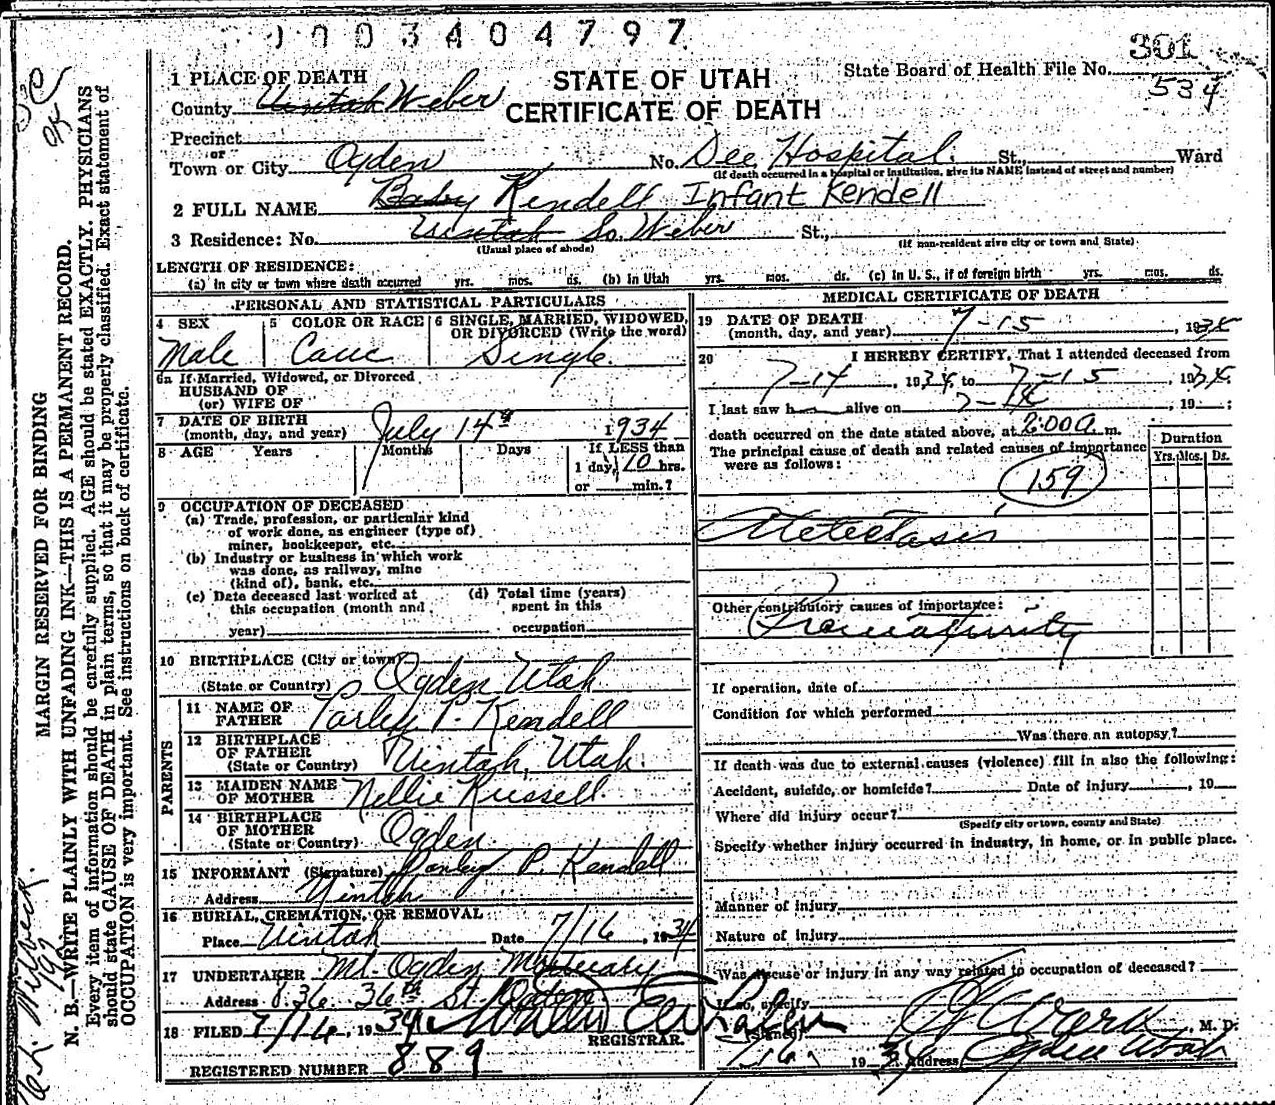 0003404797
301
1 PLACE OF DEATH
STATE OF UTAH
State Board of Health File No. 534
County Uintah Weber
CERTIFICATE OF DEATH
Precinct
or
Town or City Ogden No. Dee Hospital. St., Ward
(If death occurred in a hospital or institution, give its NAME instead of street and number)
2 FULL NAME Baby Kendell Infant Kendell
3 Residence: No. Uintah So. Weber St.,
(Usual place of abode) (If non-resident give city or town and State)
LENGTH OF RESIDENCE:
(a) In city or town where death occurred yrs. mos. ds. (b) In Utah yrs. mos. ds. (c) In U. S., if of foreign birth yrs. mos. ds.
PERSONAL AND STATISTICAL PARTICULARS
4 SEX 5 COLOR OR RACE 6 SINGLE, MARRIED, WIDOWED,
OR DIVORCED (Write the word)
Male Cauc Single.
6a If Married, Widowed, or Divorced
HUSBAND OF
(or) WIFE OF
7 DATE OF BIRTH
(month, day, and year) July 14th 1934
8 AGE Years Months Days If LESS than
1 day, 10 hrs.
or min.?
9 OCCUPATION OF DECEASED
(a) Trade, profession, or particular kind
of work done, as engineer (type of)
miner, bookkeeper, etc.
(b) Industry or business in which work
was done, as railway, mine
(kind of), bank, etc.
(c) Date deceased last worked at (d) Total time (years)
this occupation (month and spent in this
year) occupation
10 BIRTHPLACE (City or town)
(State or Country) Ogden Utah
PARENTS
11 NAME OF
FATHER P. Kendell
12 BIRTHPLACE
OF FATHER
(State or Country) Uintah, Utah
13 MAIDEN NAME
OF MOTHER Nellie Russell
14 BIRTHPLACE
OF MOTHER
(State or Country) Ogden
15 INFORMANT (Signature) P. Kendell
Address Uintah
16 BURIAL, CREMATION, OR REMOVAL
Place Uintah Date 7/16, 1934
17 UNDERTAKER Mt. Ogden Mortuary
Address 836 36th St. Ogden
18 FILED 7/16, 1934
REGISTRAR.
REGISTERED NUMBER 889
MEDICAL CERTIFICATE OF DEATH
19 DATE OF DEATH
(month, day, and year) 7-15, 1934
20 I HEREBY CERTIFY, That I attended deceased from
7-14, 1934, to 7-15, 1934.
I last saw h alive on 7-14, 19 ;
death occurred on the date stated above, at 2:00 a m.
The principal cause of death and related causes of importance
were as follows:
Duration
Yrs. Mos. Ds.
159
Atelectasis
Other contributory causes of importance:
Prematurity
If operation, date of
Condition for which performed
Was there an autopsy?
If death was due to external causes (violence) fill in also the following:
Accident, suicide, or homicide? Date of injury , 19
Where did injury occur?
(Specify city or town, county and State)
Specify whether injury occurred in industry, in home, or in public place.
Manner of injury
Nature of injury
Was disease or injury in any way related to occupation of deceased?
If so, specify
(Signed) Ward, M. D.
7/16, 1934 Address Ogden Utah
MARGIN RESERVED FOR BINDING
N. B.—WRITE PLAINLY WITH UNFADING INK—THIS IS A PERMANENT RECORD.
Every item of information should be carefully supplied. AGE should be stated EXACTLY. PHYSICIANS
should state CAUSE OF DEATH in plain terms, so that it may be properly classified. Exact statement of
OCCUPATION is very important. See instructions on back of certificate.